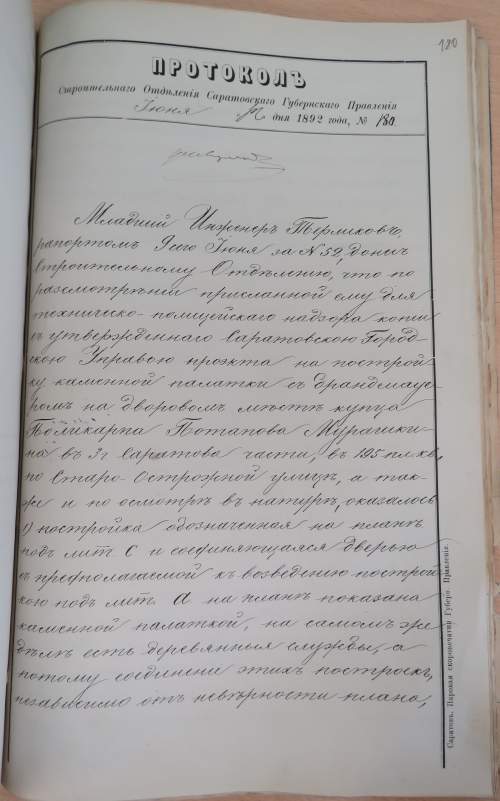 180
ПРОТОКОЛЪ
Строительнаго Отдѣленія Саратовскаго Губернскаго Правленія
Іюня дня 1892 года, № 180.
Младшій Инженеръ Терликовъ,
рапортомъ 9 сего Іюня за № 59, донесъ
Строительному Отдѣленію, что по
разсмотрѣніи присланной ему для
техническо-полицейскаго надзора копіи
съ утвержденнаго Саратовскою Город-
скою Управою проэкта на построй-
ку каменной палатки съ брандмауе-
ромъ на дворовомъ мѣстѣ купца
Поликарпа Потапова Мурашки-
на въ 3й Саратова части, въ 195 пл. кв.
по Старо-Острожной улицѣ, а так-
же и по осмотрѣ въ натурѣ, оказалось
1) постройка обозначенная на планѣ
подъ лит. С и соединяющаяся дверью
съ предполагаемой къ возведенію построй
кою подъ лит. А на планѣ показана
каменной палаткой, на самомъ же
дѣлѣ есть деревянныя службы, а
потому соединеніе этихъ построекъ,
независимо отъ невѣрности плана,
Саратовъ. Паровая скоропечатня Губерн. Правленія.